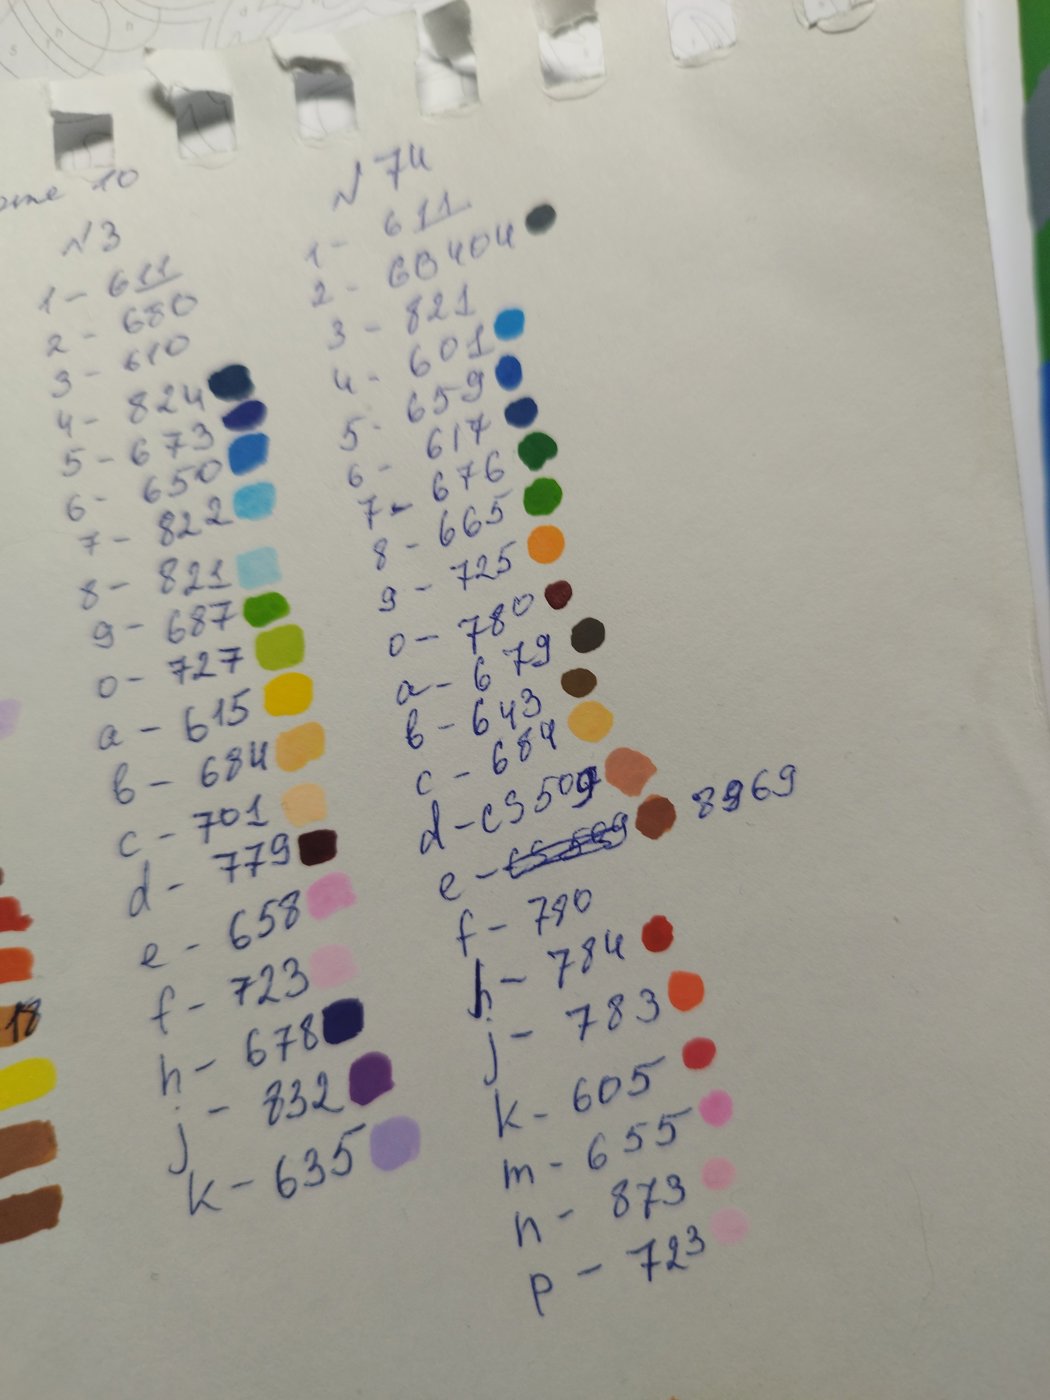 10
N3
1 - 611
2 - 680
3 - 610
4 - 824
5 - 673
6 - 650
7 - 822
8 - 821
9 - 687
0 - 727
a - 615
b - 684
c - 701
d - 779
e - 658
f - 723
h - 678
j - 832
k - 635
N74
1 - 611
2 - GB404
3 - 821
4 - 601
5 - 659
6 - 617
7 - 676
8 - 665
9 - 725
0 - 780
a - 679
b - 643
c - 684
d - CS509
e - 8969
f - 780
h - 784
j - 783
k - 605
m - 655
n - 873
p - 723
18